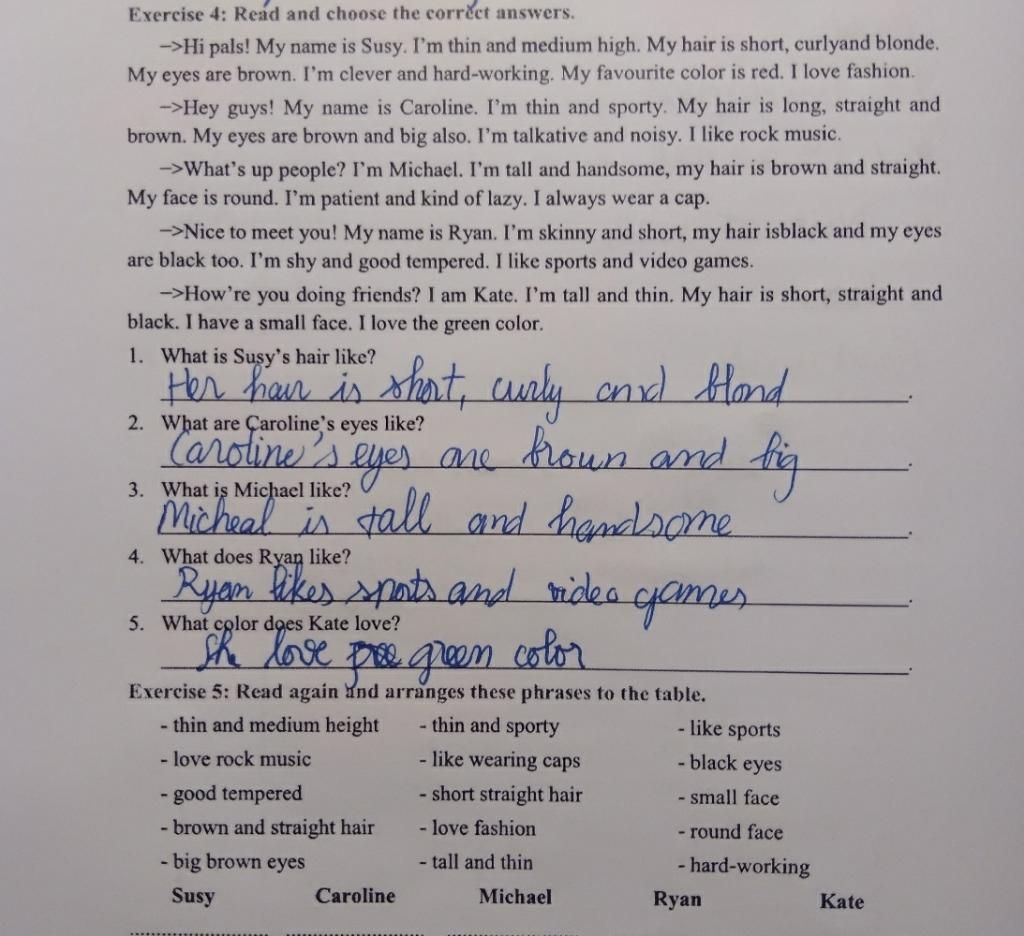 Exercise 4: Read and choose the correct answers.
–>Hi pals! My name is Susy. I'm thin and medium high. My hair is short, curlyand blonde.
My eyes are brown. I'm clever and hard-working. My favourite color is red. I love fashion.
–>Hey guys! My name is Caroline. I'm thin and sporty. My hair is long, straight and
brown. My eyes are brown and big also. I'm talkative and noisy. I like rock music.
–>What's up people? I'm Michael. I'm tall and handsome, my hair is brown and straight.
My face is round. I'm patient and kind of lazy. I always wear a cap.
–>Nice to meet you! My name is Ryan. I'm skinny and short, my hair isblack and my eyes
are black too. I'm shy and good tempered. I like sports and video games.
–>How're you doing friends? I am Kate. I'm tall and thin. My hair is short, straight and
black. I have a small face. I love the green color.
1. What is Susy's hair like?
Her hair is short, curly and blond
2. What are Caroline's eyes like?
Caroline's eyes are brown and big
3. What is Michael like?
Micheal is tall and handsome
4. What does Ryan like?
Ryan likes sports and video games
5. What color does Kate love?
She love green color
Exercise 5: Read again and arranges these phrases to the table.
- thin and medium height - thin and sporty - like sports
- love rock music - like wearing caps - black eyes
- good tempered - short straight hair - small face
- brown and straight hair - love fashion - round face
- big brown eyes - tall and thin - hard-working
Susy Caroline Michael Ryan Kate